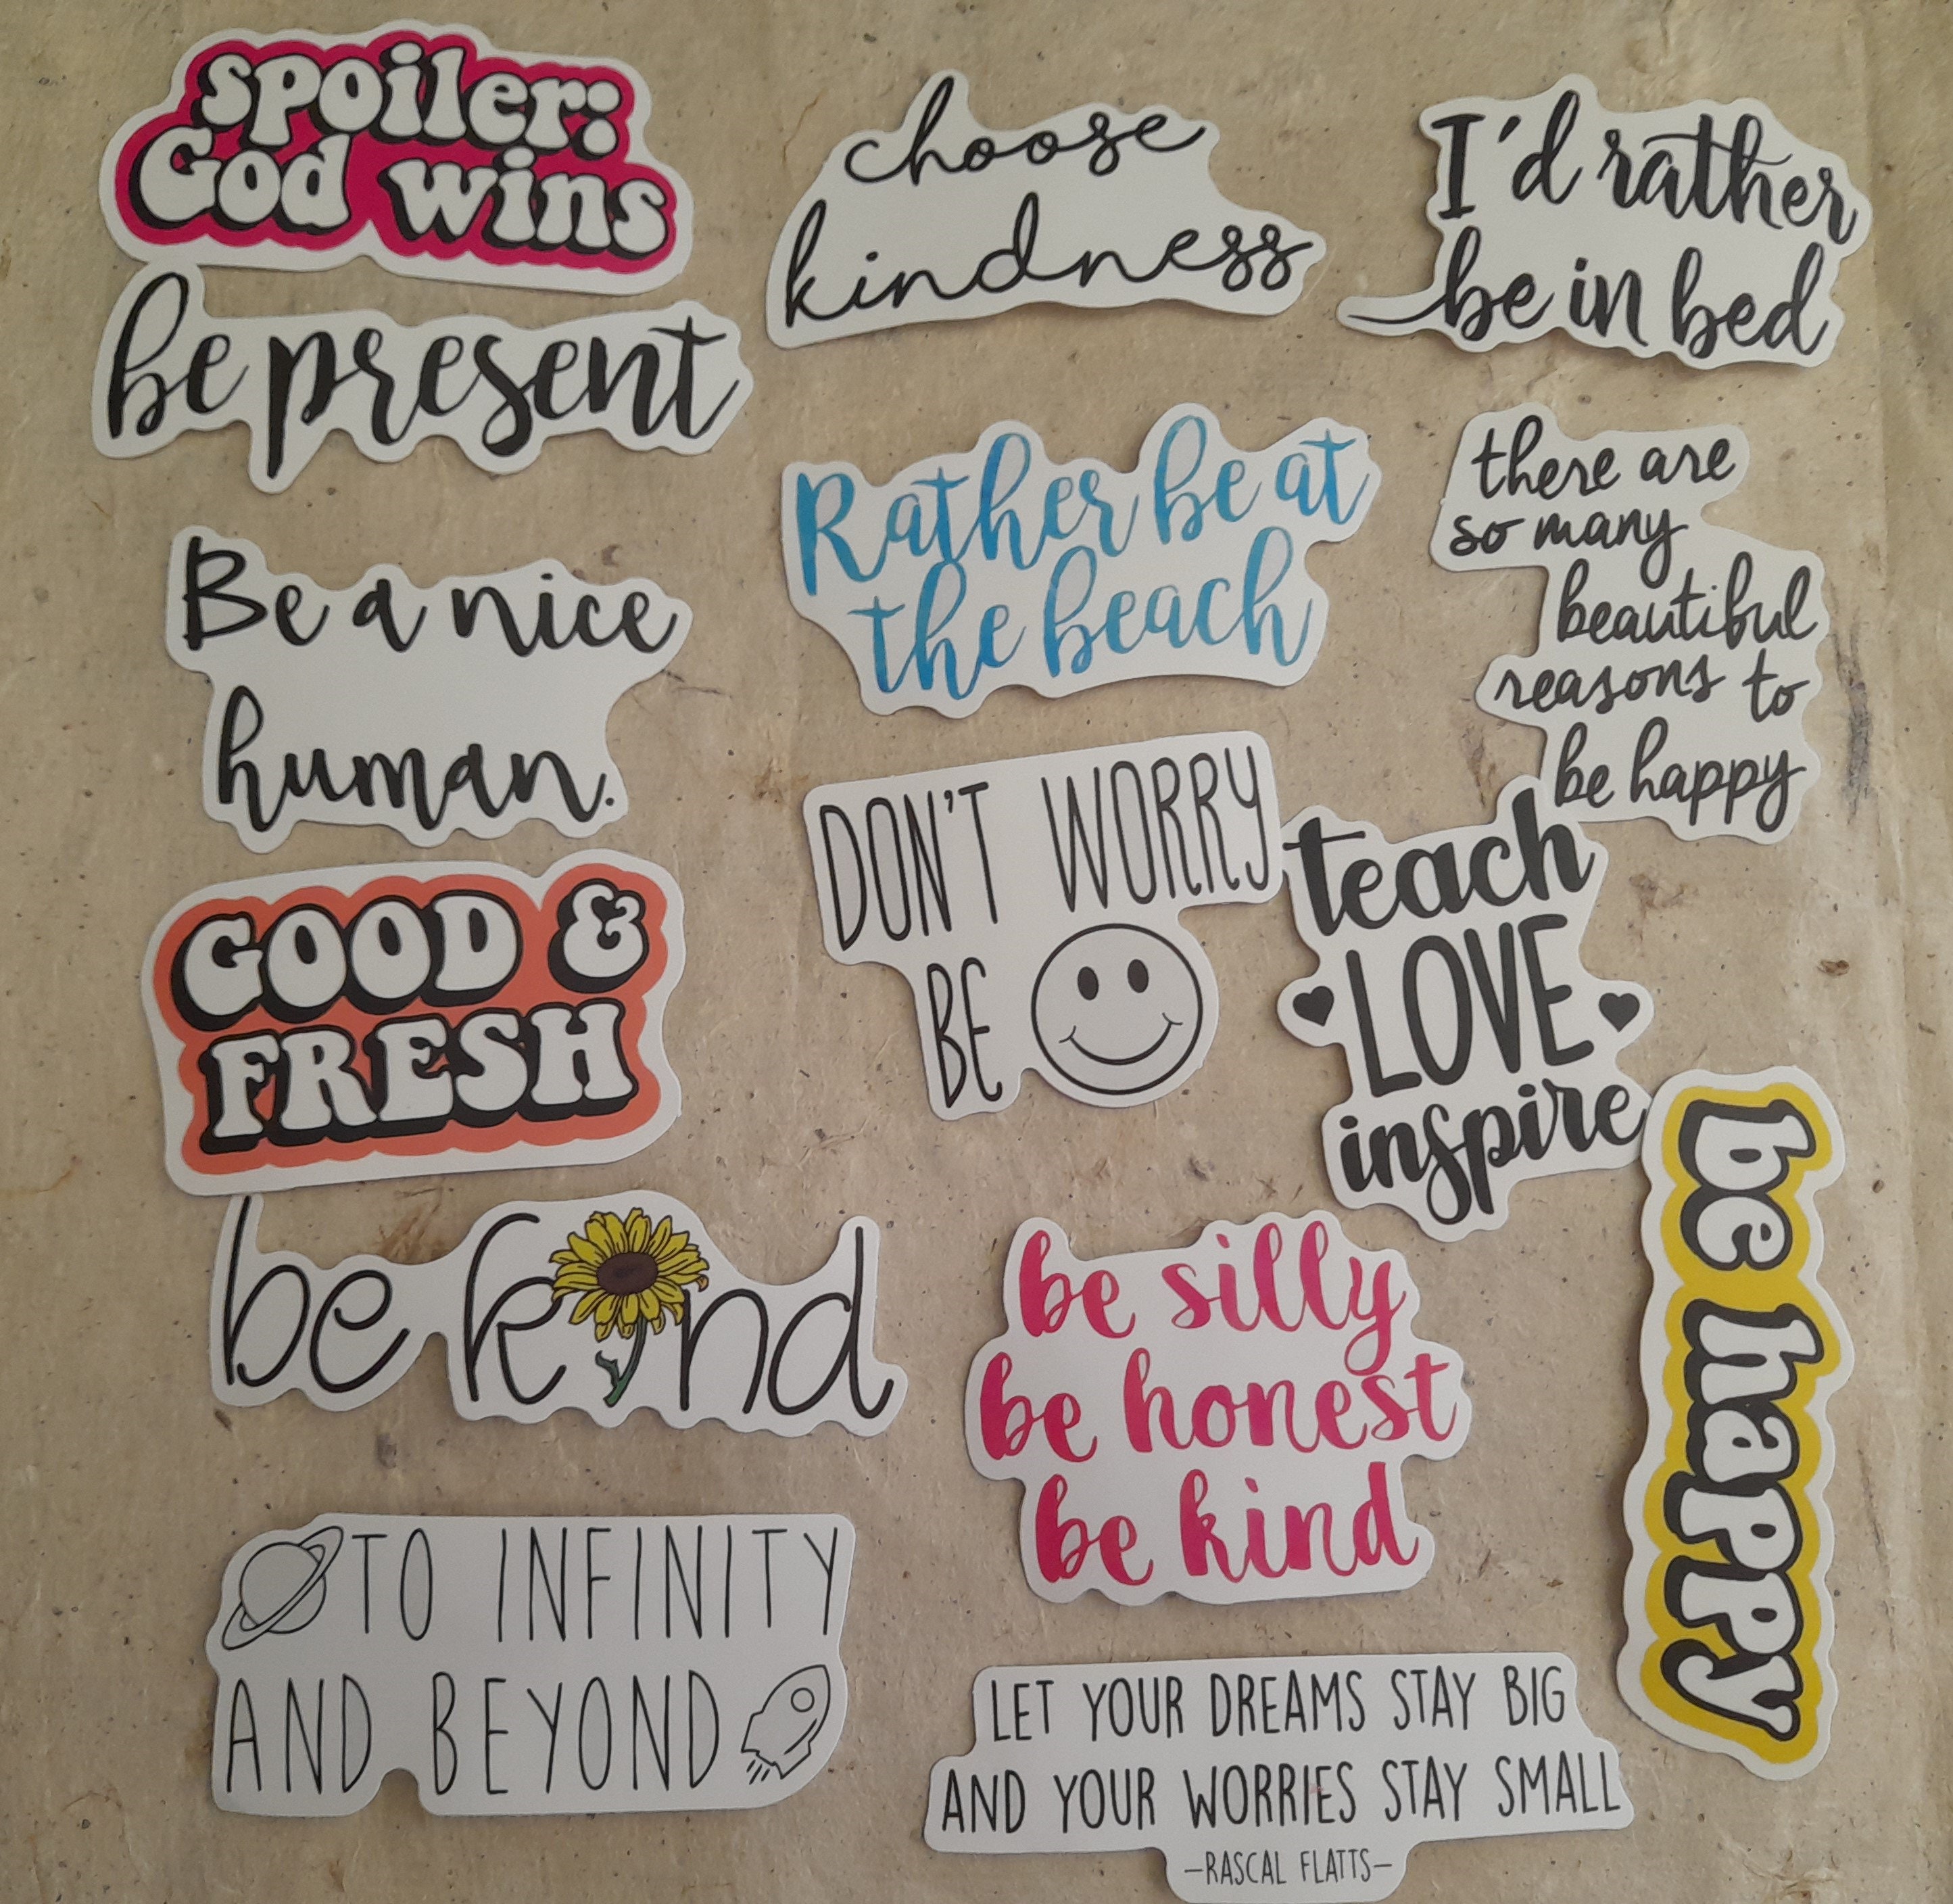 spoiler:
God wins
be present
choose
kindness
I'd rather
be in bed
Be a nice
human.
Rather be at
the beach
there are
so many
beautiful
reasons to
be happy
GOOD &
FRESH
DON'T WORRY
BE
teach
LOVE
inspire
be happy
be k nd
be silly
be honest
be kind
TO INFINITY
AND BEYOND
LET YOUR DREAMS STAY BIG
AND YOUR WORRIES STAY SMALL
-RASCAL FLATTS-